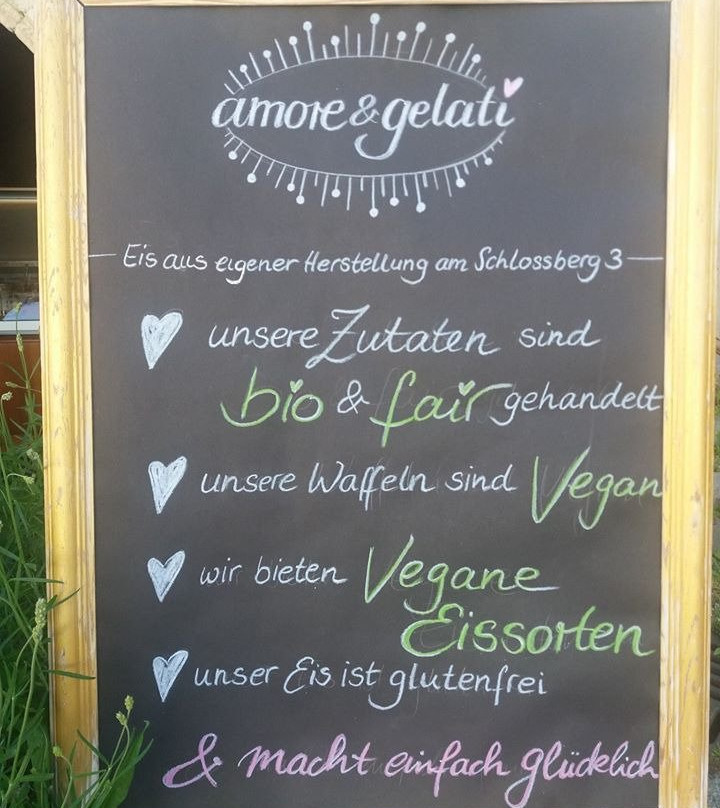 amore & gelati
Eis aus eigener Herstellung am Schlossberg 3
unsere Zutaten sind
bio & fair gehandelt
unsere Waffeln sind Vegan
wir bieten Vegane
Eissorten
unser Eis ist glutenfrei
& macht einfach glücklich